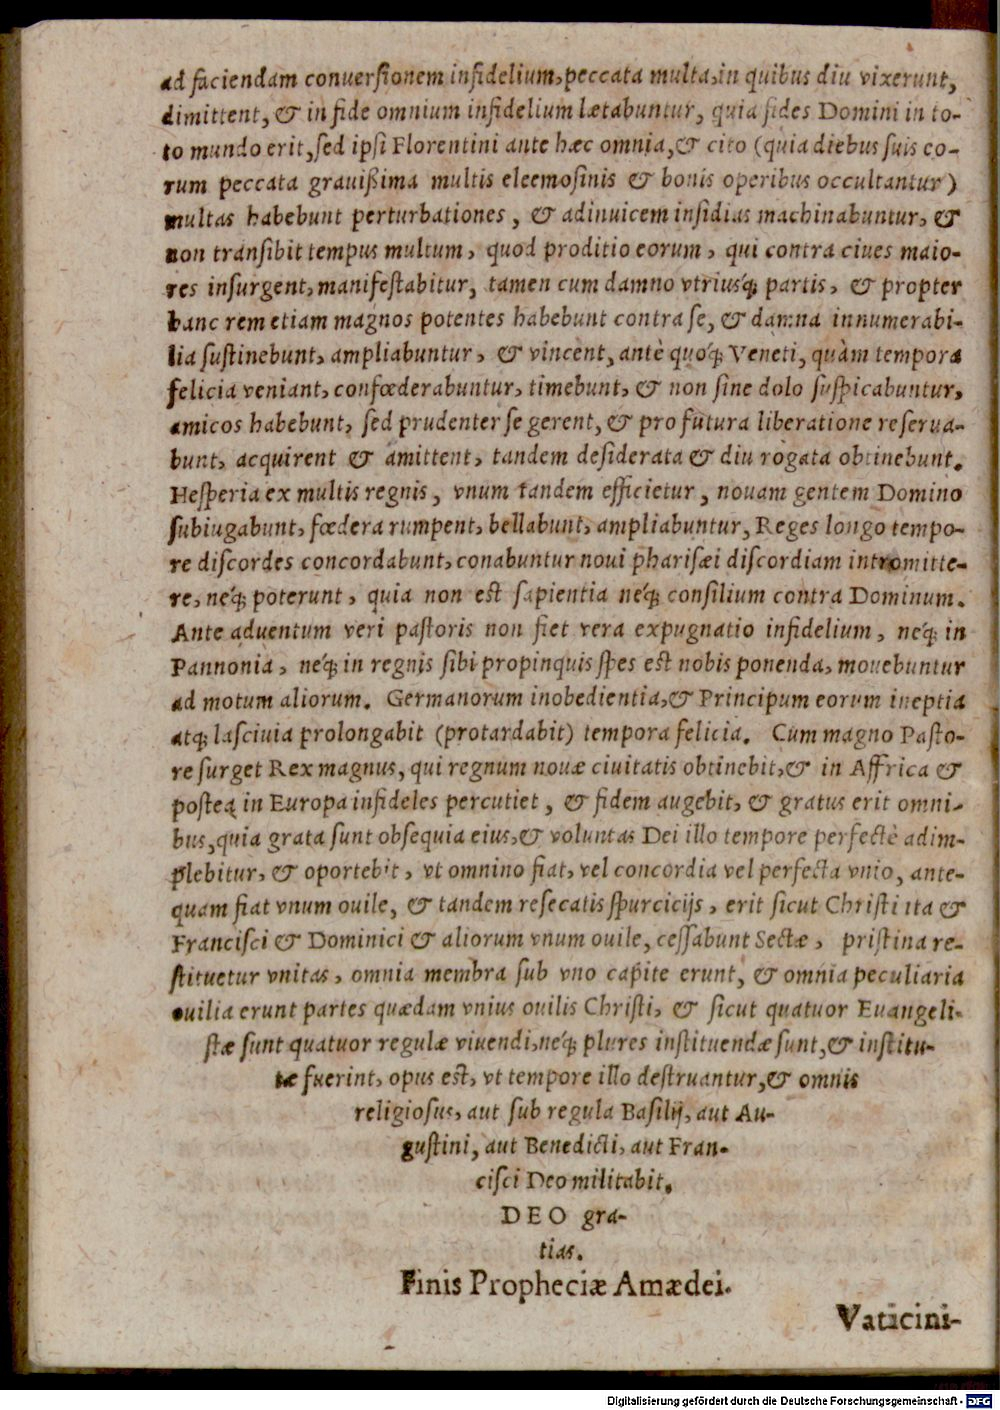 ad faciendam conuersionem infidelium, peccata multa, in quibus diu vixerunt,
dimittent, & in fide omnium infidelium lætabuntur, quia fides Domini in to-
to mundo erit, sed ipsi Florentini ante hæc omnia, & cito (quia diebus suis eo-
rum peccata grauißima multis eleemosinis & bonis operibus occultantur)
multas habebunt perturbationes, & adinuicem insidias machinabuntur, &
non transibit tempus multum, quod proditio eorum, qui contra ciues maio-
res insurgent, manifestabitur, tamen cum damno vtriusq́; partis, & propter
hanc rem etiam magnos potentes habebunt contra se, & damna innumerabi-
lia sustinebunt, ampliabuntur, & vincent, antè quoq́; Veneti, quàm tempora
felicia veniant, confœderabuntur, timebunt, & non sine dolo suspicabuntur,
amicos habebunt, sed prudenter se gerent, & pro futura liberatione reserua-
bunt, acquirent & amittent, tandem desiderata & diu rogata obtinebunt.
Hesperia ex multis regnis, vnum tandem efficietur, nouam gentem Domino
subiugabunt, fœdera rumpent, bellabunt, ampliabuntur, Reges longo tempo-
re discordes concordabunt, conabuntur noui pharisæi discordiam intromitte-
re, neq́; poterunt, quia non est sapientia neq́; consilium contra Dominum.
Ante aduentum veri pastoris non fiet vera expugnatio infidelium, neq́; in
Pannonia, neq́; in regnis sibi propinquis spes est nobis ponenda, mouebuntur
ad motum aliorum. Germanorum inobedientia, & Principum eorum ineptia
atq; lasciuia prolongabit (protardabit) tempora felicia. Cum magno Pasto-
re surget Rex magnus, qui regnum nouæ ciuitatis obtinebit, & in Affrica &
posteą in Europa infideles percutiet, & fidem augebit, & gratus erit omni-
bus, quia grata sunt obsequia eius, & voluntas Dei illo tempore perfectè adim-
plebitur, & oportebit, vt omnino fiat, vel concordia vel perfecta vnio, ante-
quam fiat vnum ouile, & tandem resecatis spurcicijs, erit sicut Christi ita &
Francisci & Dominici & aliorum vnum ouile, cessabunt Sectæ, pristina re-
stituetur vnitas, omnia membra sub vno capite erunt, & omnia peculiaria
ouilia erunt partes quædam vnius ouilis Christi, & sicut quatuor Euangeli-
stæ sunt quatuor regulæ viuendi, neq́; plures instituendæ sunt, & institu-
tæ fuerint, opus est, vt tempore illo destruantur, & omnis
religiosus, aut sub regula Basilij, aut Au-
gustini, aut Benedicti, aut Fran-
cisci Deo militabit.
DEO gra-
tias.
Finis Propheciæ Amædei.
Vaticini-
Digitalisierung gefördert durch die Deutsche Forschungsgemeinschaft - DFG